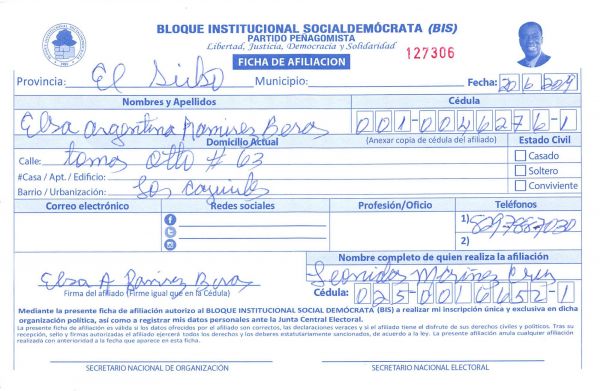 BLOQUE INSTITUCIONAL SOCIALDEMÓCRATA (BIS)
PARTIDO PEÑAGOMISTA
Libertad, Justicia, Democracia y Solidaridad
FICHA DE AFILIACION 127306
Provincia: El Municipio: Fecha: 20/6/2019
Nombres y Apellidos Cédula
Elsa Argentina Ramirez Beras 001-0046276-1
Domicilio Actual (Anexar copia de cédula del afiliado) Estado Civil
Calle: tomas otto # 63 Casado
#Casa / Apt. / Edificio: Soltero
Barrio / Urbanización: Los Conviviente
Correo electrónico Redes sociales Profesión/Oficio Teléfonos
1) 829-7887030
2)
Nombre completo de quien realiza la afiliación
Elsa A Ramirez Beras Leonidas
Firma del afiliado (Firme igual que en la Cédula) Cédula: 025-0016652-1
Mediante la presente ficha de afiliación autorizo al BLOQUE INSTITUCIONAL SOCIAL DEMÓCRATA (BIS) a realizar mi inscripción única y exclusiva en dicha
organización política, así como a registrar mis datos personales ante la Junta Central Electoral.
La presente ficha de afiliación es válida si los datos ofrecidos por el afiliado son correctos, las declaraciones veraces y si el afiliado tiene el disfrute de sus derechos civiles y políticos. Tras su
recepción, sello y firmas autorizadas el afiliado ejercerá todos los derechos y los deberes estatutariamente sancionados, de acuerdo a la ley. La presente afiliación anula cualquier afiliación
realizada con anterioridad a la fecha que aparece en esta ficha.
SECRETARIO NACIONAL DE ORGANIZACIÓN SECRETARIO NACIONAL ELECTORAL